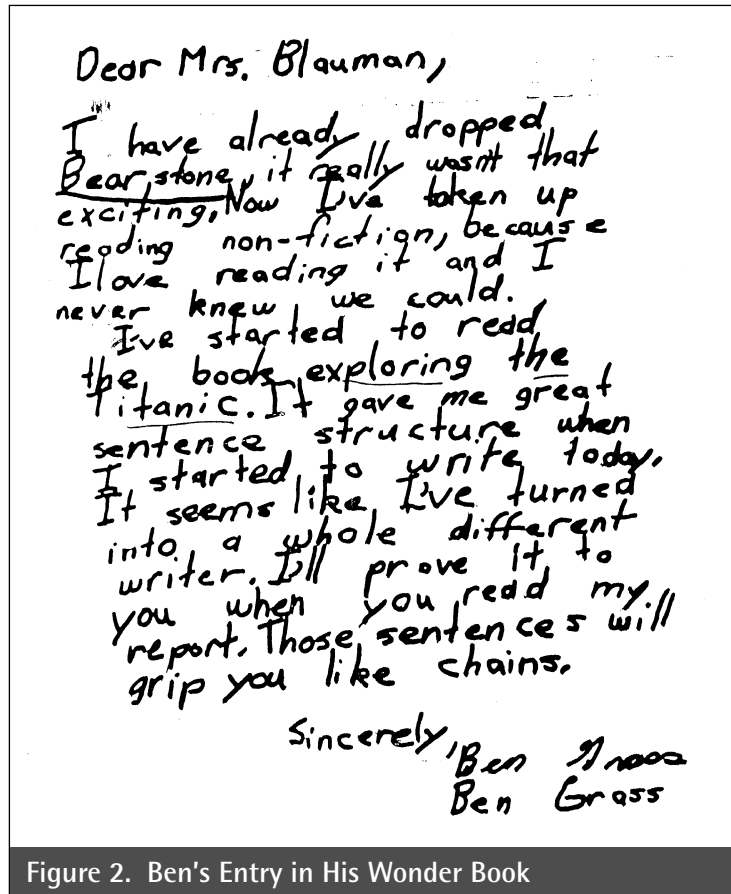 Dear Mrs. Blauman,
I have already dropped
Bearstone, it really wasn't that
exciting. Now I've taken up
reading non-fiction, because
I love reading it and I
never knew we could.
I've started to read
the book exploring the
Titanic. It gave me great
sentence structure when
I started to write today.
It seems like I've turned
into a whole different
writer. I'll prove it to
you when you read my
report. Those sentences will
grip you like chains.
Sincerely,
Ben Grass
Ben Grass
Figure 2. Ben's Entry in His Wonder Book